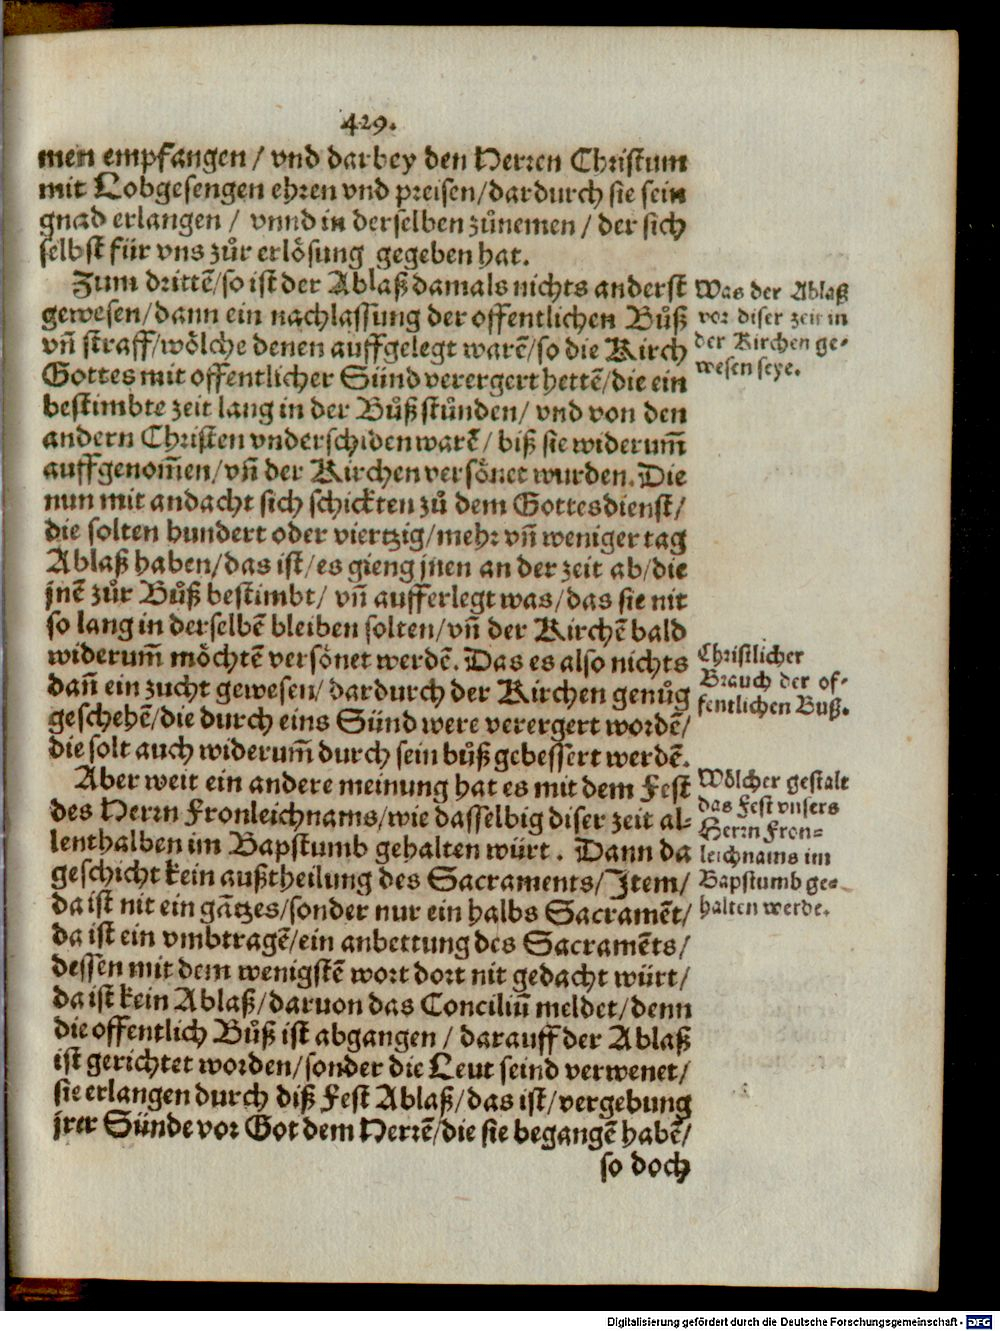 429.
men empfangen / vnd darbey den Herren Christum
mit Lobgesengen ehren vnd preisen/dardurch sie sein
gnad erlangen / vnnd in derselben zůnemen / der sich
selbst für vns zůr erlösung gegeben hat.
Zum drittē/so ist der Ablaß damals nichts anderst
gewesen/dann ein nachlassung der offentlichen Bůß
vn̄ straff/wölche denen auffgelegt warē/so die Kirch
Gottes mit offentlicher Sünd verergert hettē/die ein
bestimbte zeit lang in der Bůß stůnden/ vnd von den
andern Christen vnderschiden warē/ biß sie widerum̄
auffgenom̄en/vn̄ der Kirchen versönet wurden. Die
nun mit andacht sich schickten zů dem Gottesdienst/
die solten hundert oder viertzig/mehr vn̄ weniger tag
Ablaß haben/das ist/es gieng jnen an der zeit ab/die
jnē zůr Bůß bestimbt/ vn̄ aufferlegt was/das sie nit
so lang in derselbē bleiben solten/vn̄ der Kirchē bald
widerum̄ möchtē versönet werdē. Das es also nichts
dan̄ ein zucht gewesen/dardurch der Kirchen genůg
geschehē/die durch eins Sünd were verergert wordē/
die solt auch widerum̄ durch sein bůß gebessert werdē.
Aber weit ein andere meinung hat es mit dem Fest
des Herrn Fronleichnams/wie dasselbig diser zeit al-
lenthalben im Bapstumb gehalten würt. Dann da
geschicht kein außtheilung des Sacraments/Item/
da ist nit ein gātzes/sonder nur ein halbs Sacramēt/
da ist ein vmbtragē/ein anbettung des Sacramēts/
dessen mit dem wenigstē wort dort nit gedacht würt/
da ist kein Ablaß/daruon das Conciliū meldet/denn
die offentlich Bůß ist abgangen / darauff der Ablaß
ist gerichtet worden/sonder die Leut seind verwenet/
sie erlangen durch diß Fest Ablaß/das ist/vergebung
jrer Sünde vor Got dem Herrē/die sie begangē habē/
so doch
Was der Ablaß
vor diser zeit in
der Kirchen ge-
wesen seye.
Christlicher
Brauch der of-
fentlichen Buß.
Wölcher gestalt
das Fest vnsers
Herrn Fron-
leichnams im
Bapstumb ge-
halten werde.
Digitalisierung gefördert durch die Deutsche Forschungsgemeinschaft - DFG